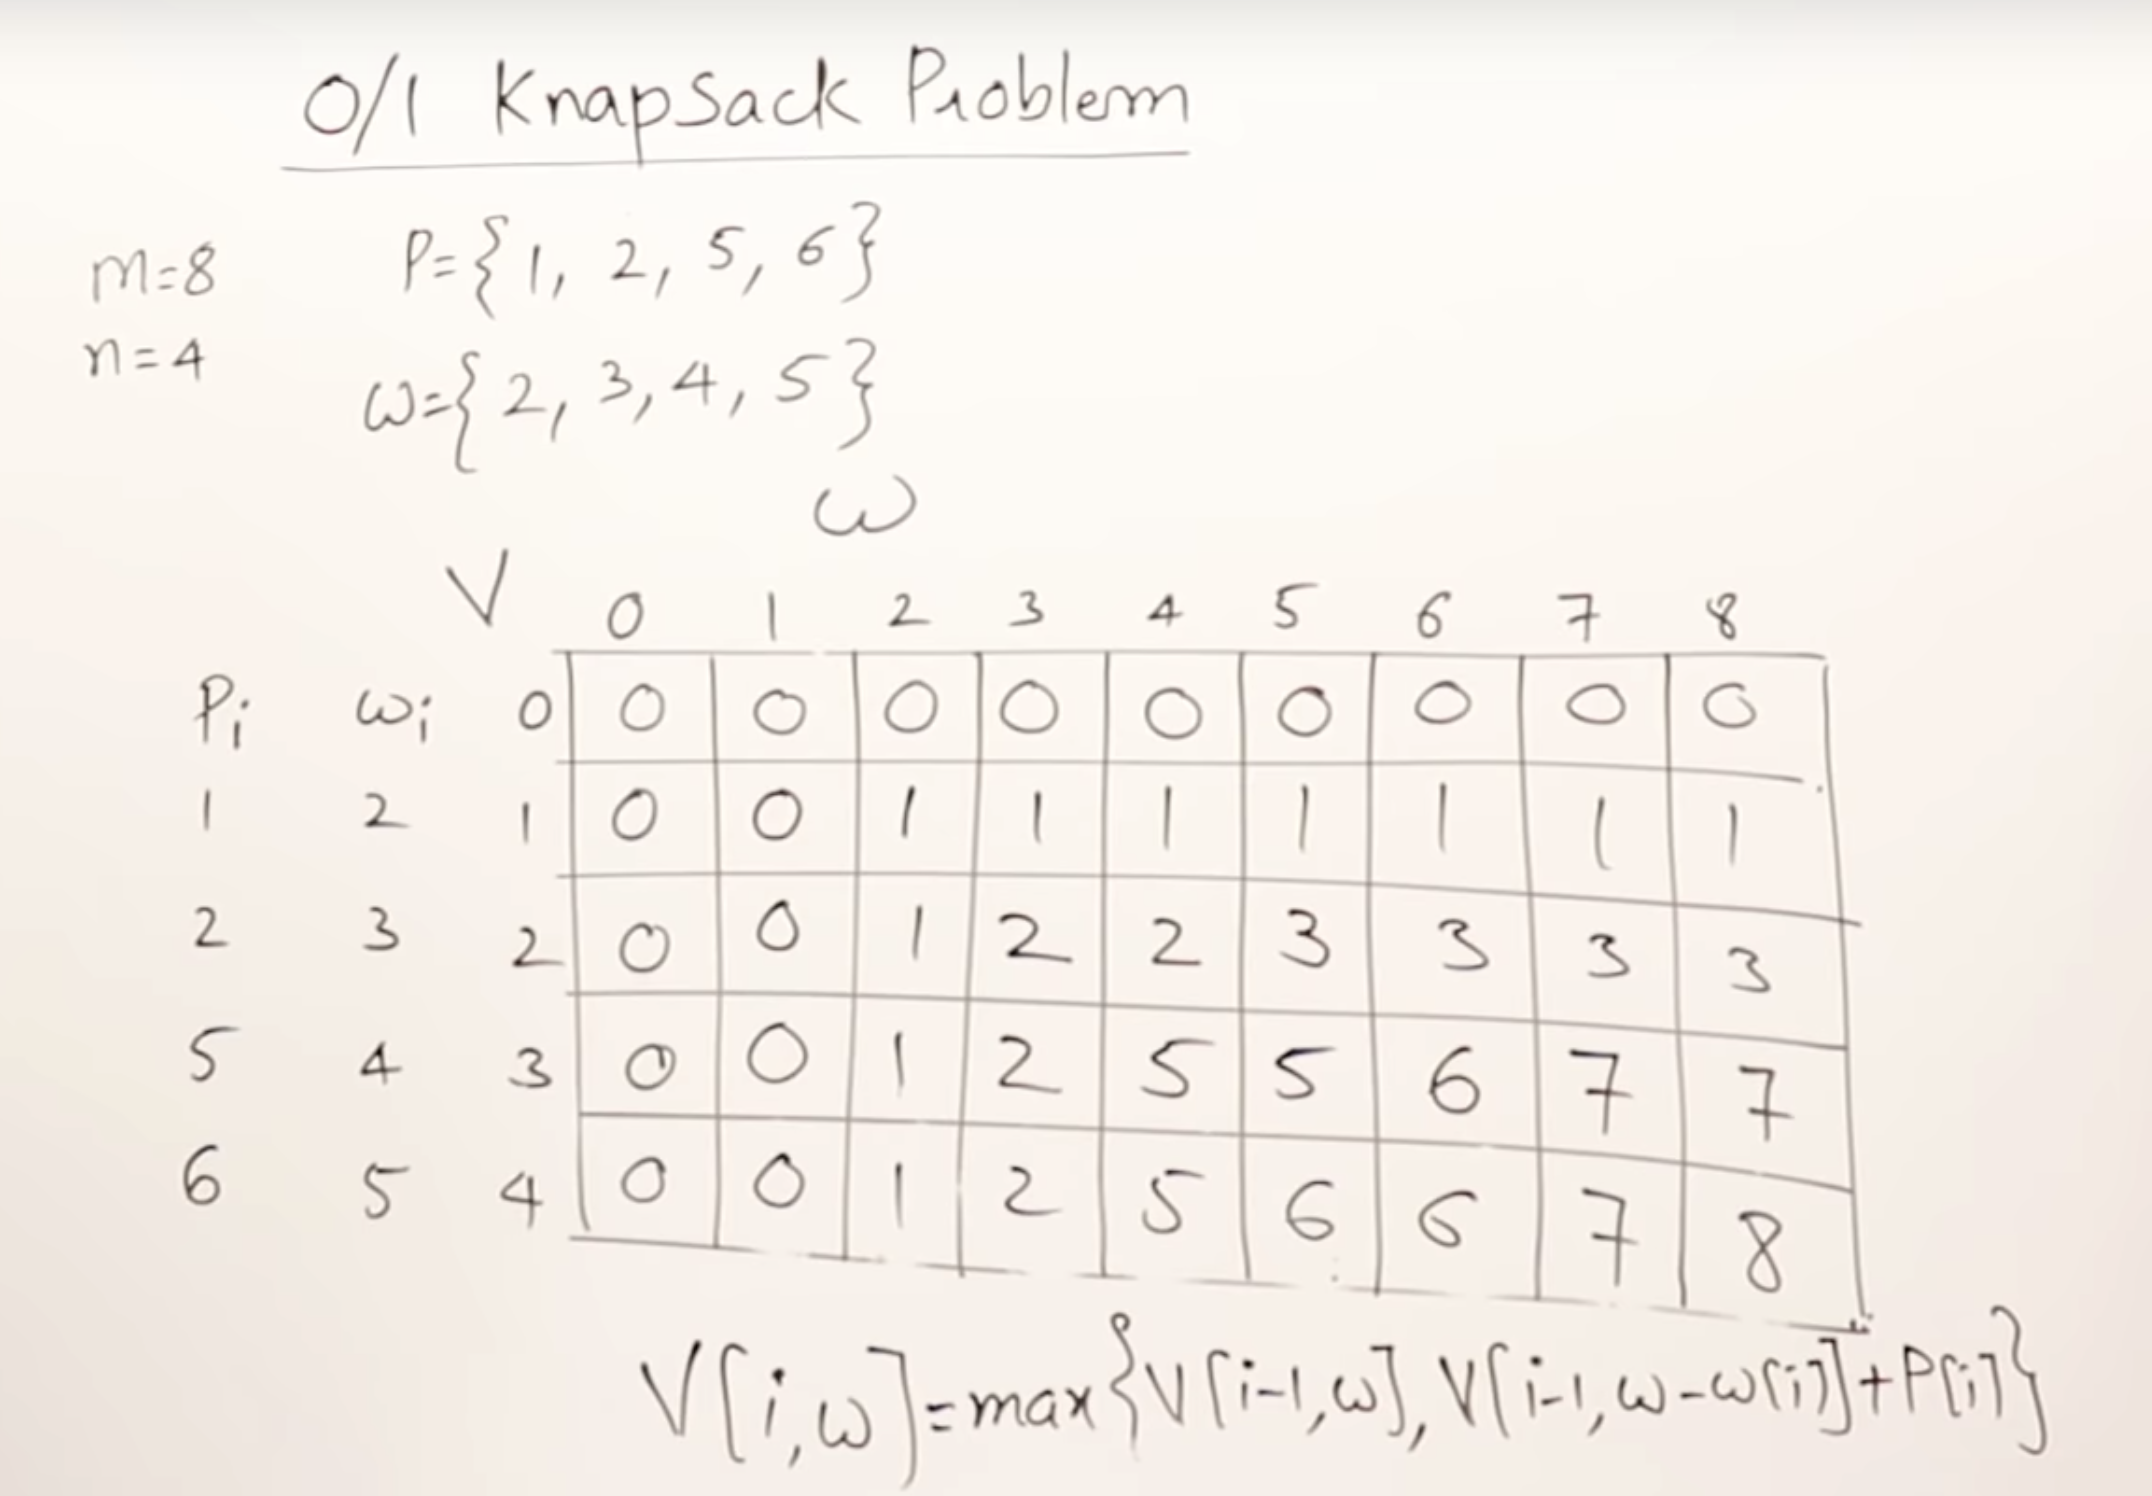 0/1 KnapSack Problem
m=8 P={1, 2, 5, 6}
n=4 ω={2, 3, 4, 5}
ω
V 0 1 2 3 4 5 6 7 8
Pi ωi 0 0 0 0 0 0 0 0 0 0
1 2 1 0 0 1 1 1 1 1 1 1
2 3 2 0 0 1 2 2 3 3 3 3
5 4 3 0 0 1 2 5 5 6 7 7
6 5 4 0 0 1 2 5 6 6 7 8
V[i,ω]=max{V[i-1,ω], V[i-1,ω-ω[i]]+P[i]}